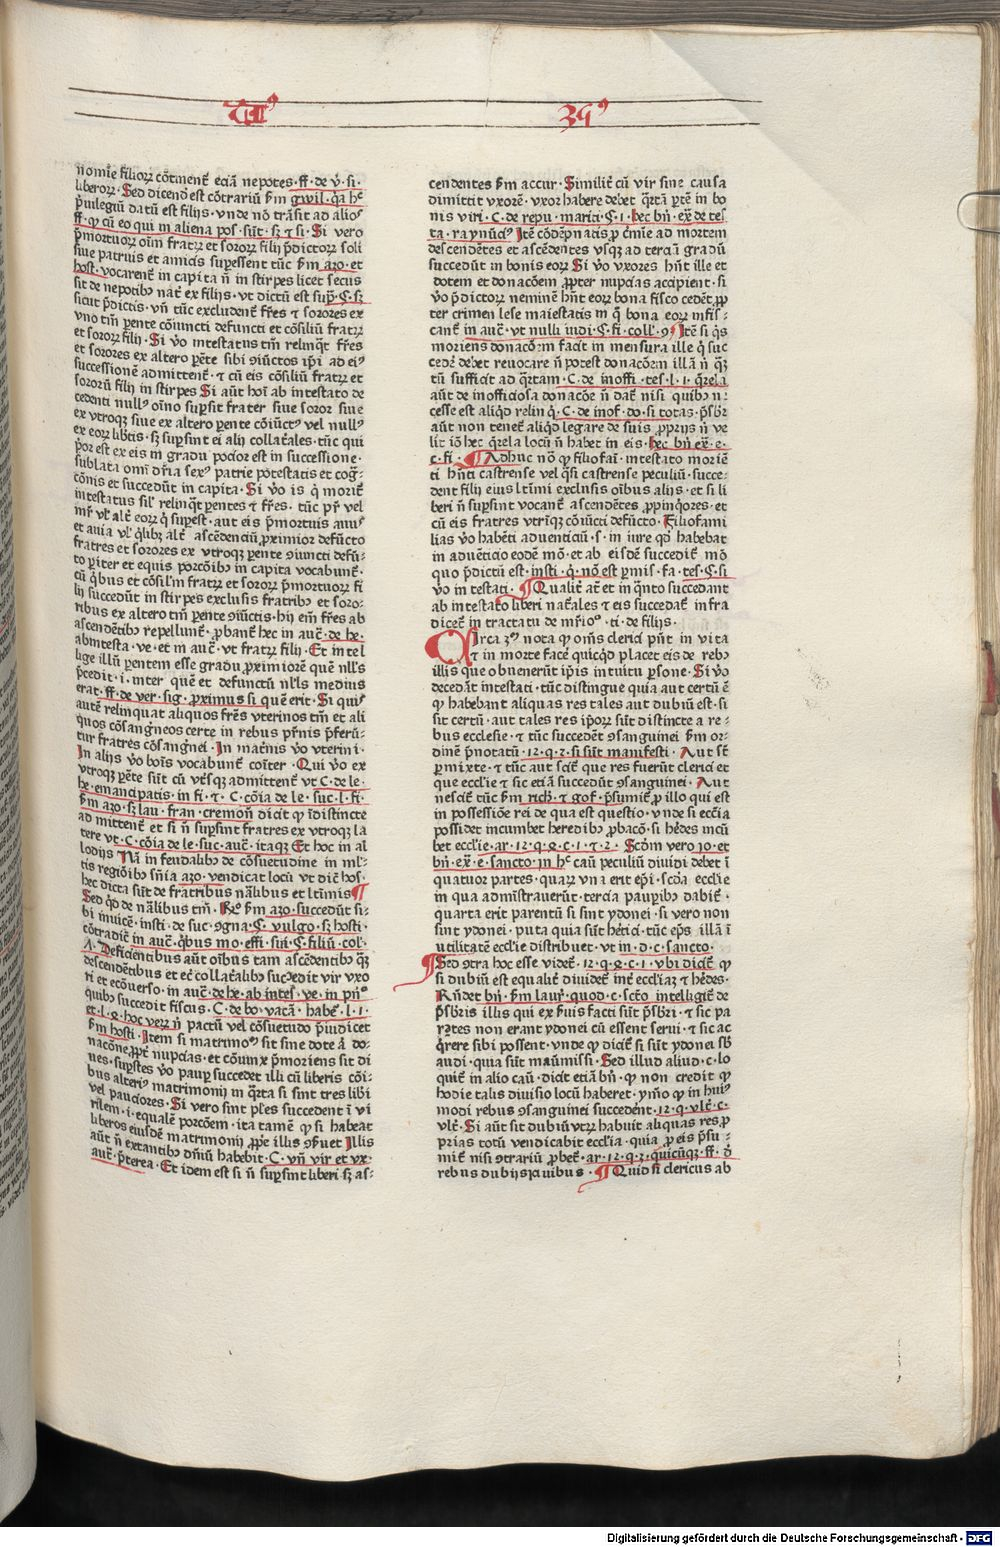 nomīe filiorꝝ cōtinent᷒ eciā nepotes · ff · de v̄ · si ·
liberorꝝ · Sed dicend᷒ est cōtrariū ẜm gwil · q̇a h᷒
p̄uilegiū datū est filijs · vnde nō trāsit ad alios
ff · ꝙ cū eo qui in aliena pos · sūt · §· ⁊ si · Si vero
p̄mortuorꝝ oīm fratꝝ et sororꝝ filij p̄dictorꝝ soli
siue patruis et amicis suꝑessent tūc ẜm azo · et
host · vocarent᷒ in capita n̄ in stirpes licet secus
sit de nepotibꝰ nat᷒ ex filijs · vt dictū est sup̄ · C · §·
sicut p̄dictis · vn̄ tūc excludent᷒ fr̄es ⁊ sorores ex
vno tm̄ ꝑente cōiuncti defuncti et cōsiliū fratꝝ
et sororꝝ filij · Si v̊o intestatus tm̄ relinq̇t fr̄es
et sorores ex altero ꝑēte sibi ꝯiūctos ip̄i ad eiꝰ
successionē admittent᷒ · ⁊ cū eis cōsiliū fratꝝ et
sororū filij in stirpes Si aūt hoī ab intestato de
cedenti nullꝰ oīno suꝑsit frater siue soror siue
ex vtroqꝫ siue ex altero ꝑente cōiūctꝰ vel nullꝰ
ex eorꝝ libtis · sꝫ suꝑsint ei alij collat᷒ales · tūc qui
p̄or est ex eis in gradu pocior est in successione ·
sublata omī dr̄ia sexꝰ patrie potestatis et cog᷒-
cōnis et succedūt in capita · Si v̊o is q̇ morit᷒
intestatus sil᷒ relinq̇t ꝑentes ⁊ fr̄es · tūc pr̄ vel
mr̄ vl᷒ alt᷒ eorꝝ q̇ suꝑest · aut eis p̄mortuis auꝰ
et auia vl᷒ q̇libꝫ alt᷒ ascēdenciū ꝓximior defūcto
fratres et sorores ex vtroqꝫ ꝑente ꝯiuncti defū-
to ꝑiter et equis porcōibꝰ in capita vocabunt᷒ ·
cū q̇bus et cōsil᷒m fratꝝ et sororꝝ p̄mortuorꝝ fi
lij succedūt in stirpes exclusis fratribꝰ et soro-
ribus ex altero tm̄ ꝑente ꝯiūctis · hij em̄ fr̄es ab
ascendētibꝰ repellunt᷒ · ꝓbant᷒ hec in auc᷒ · de he ·
abintesta · ve · et in auc᷒ · vt fratꝝ filij · Et intel
lige illū ꝑentem esse gradu ꝓximiorē quē nl̄ls
p̄cedit · i · inter quē et defunctū nl̄ls medius
erat · ff · de ver · sig · ꝓximus si quē erit · Si quis
autē relinquat aliquos fr̄es vterinos tm̄ et ali
quos cōsang᷒neos certe in rebus pr̄nis p̄ferū-
tur fratres cōsang᷒nei · In mat᷒nis v̊o vterini ·
In alijs v̊o boīs vocabunt᷒ cōiter · Qui v̊o ex
vtroqꝫ ꝑēte sūt cū vt᷒sqꝫ admittent᷒ vt C · de le ·
he · emancipatis · in fi · ⁊ · C · cōia de le · suc · l · fi ·
ẜm azo · sꝫ lau · fran · cremon᷒ dicit ꝙ īdistincte
admittent᷒ et si n̄ suꝑsint fratres ex vtroqꝫ la
tere vt · C · cōia de le · suc · auc᷒ · itaqꝫ Et hoc in al
lodijs Nā in feudalibꝰ de cōsuetudine in ml᷒-
tis regiōibꝰ sn̄ia azo · vendicat locū vt dic᷒ hos ·
hec dicta sūt de fratribus nālibus et ltīmis ¶
Sed q̇d de nālibus tm̄ · Rō ẜm azo · succedūt si-
bi inuicē · insti · de suc · ꝯgna · C · vulgo · sꝫ hosti ·
cōtradic᷒ in auc᷒ · q̇bus mo · effi · sui · C · filiū · col᷒ ·
A · Deficientibus aūt oībus tam ascēdentibꝰ q̇ꝫ
descendētibus et ec᷒ collat᷒alibꝰ succedit vir vxo
ri et ecōuerso · in auc᷒ · de he · ab intes᷒ · ve · in prīꝰ
quibꝰ succedit fiscus · C · de bo · vacā · habe᷒ · l · i ·
et · l · q · hoc verꝝ n̄ pactū vel cōsuetudo p̄iudicet
ẜm hosti · Item si matrimoꝰ sit sine dote ⁊ do-
nacōne ꝓpt᷒ nupcias · et cōiunx p̄moriens sit di
ues · suꝑstes v̊o pauꝑ succedet illi cū liberis cōi-
bus alteriꝰ matrimonij in q̇rta si sint tres libi
vel pauciores · Si vero sint pl̄es succedent ī vi
rilem · i · equalē porcōem · ita tamē ꝙ si habeat
liberos eiusdē matrimonij ꝓpe᷒ illis ꝯẜuet Illis
aūt n̄ extantibꝰ dn̄iū habebit · C · vn̄ vir et vx ·
auc᷒ · p̄terea · Et idem est si n̄ suꝑsint liberi sꝫ as-
cendentes ẜm accur · Similit᷒ cū vir sine causa
dimittit vxorē · vxor habere debet q̇rtā ꝑtē in bo
nis viri · C · de repu · mariti · C · i · hec bn̄ · ex᷒ de tes
ta · raynuciꝰ Itē cōdēpnatis ꝓ c᷒mīe ad mortem
descendētes et ascēdentes vsqꝫ ad terciā gradū
succedūt in bonis eorꝝ Si v̊o vxores hn̄t ille et
dotem et donacōem ꝓpter nupcias accipient · si
v̊o p̄dictorꝝ neminē hn̄t eorꝝ bona fisco cedēt ꝓp
ter crimen lese maiestatis in q̇ bona eorꝝ infis-
cant᷒ in auc᷒ · vt nulli iudi · C · fi · coll᷒ · 9 Itē si q̇s
moriens donacōm facit in mensura ille q̇ suc
cedē debet reuocare n̄ potest donacōm illā n̄ q̇ꝫ
tū sufficit ad q̇rtam · C · de inoffi · tes · l · i · q̇rela
aūt de inofficiosa donacōe n̄ dat᷒ nisi quibꝰ ne
cesse est aliq̇d relinq̇ · C · de inof · do · si totas · p̄sbr̄
aūt non tenet᷒ aliq̇d legare de suis ꝓprijs n̄ ve
lit iō hec q̇rela locū n̄ habet in eis · hec bn̄ ex᷒ · e ·
c · fi · ¶ Adhuc nō ꝙ filiofaī · intestato moriē
ti hn̄ti castrense vel q̇si castrense peculiū · succe-
dent filij eius ltīmi exclusis oībus alijs · et si li
beri n̄ suꝑsint vocant᷒ ascendētes ꝓpinq̇ores · et
cū eis fratres vtrīqꝫ cōiūcti defūcto · Filiofami
lias v̊o habēti aduenticiū · s · in iure qd᷒ habebat
in aduēticio eodē mō · et ab eisdē succedit᷒ mō
quo p̄dictū est · insti · q̇ · nō est ꝑmis · fa · tes · C · si
v̊o intestati · ¶ Qualit᷒ at᷒ et in q̇nto succedant
ab intestato liberi nat᷒ales ⁊ eis succedat᷒ infra
dicet᷒ in tractatu de mr̄ioꝰ · ti · de filijs ·
Circa 3ᵐ nota ꝙ om̄s clerici pn̄t in vita
⁊ in morte face᷒ quicq̇d placet eis de rebꝰ
illis que obuenerūt ip̄is intuitu ꝑsone · Si v̊o
decedāt intestati · tūc distingue quia aut certū ē
ꝙ habebant aliquas res tales aut dubiū est · si
sit certū · aut tales res ip̄orꝝ sūt distincte a re-
bus ecclesie · ⁊ tūc succedēt ꝯsanguinei ẜm or-
dinē p̄notatū · 12 · q · 2 · si sūt manifesti · Aut st᷒
ꝑmixte · ⁊ tūc aut scit᷒ que res fuerūt clerici et
que eccl̄ie ⁊ sic etiā succedūt ꝯsanguinei · Aut
nescit᷒ tūc ẜm rich · ⁊ gof · p̄sumit᷒ ꝓ illo qui est
in possessiōe rei de qua est questio · vnde si ecc̄ia
possidet incumbet heredibꝰ ꝓbacō · si h᷒des incū
bet eccl̄ie · ar · 12 · q · 8 · c · 1 · ⁊ · 2 · Scōm vero 10 · et
bn̄ · ex᷒ · e · sancto · in h᷒ caū peculiū diuidi debet ī
quatuor partes · quarꝝ vna erit ep̄i · scōa eccl̄ie
in qua admīstrauerūt · tercia pauꝑibꝰ dabit᷒ ·
quarta erit parentū si sint ydonei · si vero non
sint ydonei · puta quia sūt h᷒tici · tūc ep̄s illā ī
vtilitatē eccl̄ie distribuet · vt in · d · c · sancto ·
¶ Sed ꝯtra hoc esse videt᷒ · 12 · q · 8 · c · 1 · vbi dicit᷒ ꝙ
si dubiū est equalit᷒ diuidet᷒ int᷒ eccl̄iaꝫ ⁊ h᷒des ·
Rn̄det bn̄ · ẜm laur᷒ · quod · c · sc̄to intelligit᷒ de
p̄sbr̄is illis qui ex ẜuis facti sūt p̄sbr̄i · ⁊ sic pa
rētes non erant ydonei cū essent serui · ⁊ sic ac
q̇rere sibi possent · vnde ꝙ dicit᷒ si sūt ydonei sb᷒
audi · quia sūt maūmissi · Sed illud aliud · c · lo
quit᷒ in alio caū · dicit etiā bn̄ · ꝙ non credit ꝙ
hodie talis diuisio locū haberet · ymo ꝙ in huiꝰ
modi rebus ꝯsanguinei succedent · 12 · q · vlt᷒ · c ·
vlt᷒ · Si aūt sit dubiū vtꝝ habuit aliquas res ꝓ
prias totū vendicabit eccl̄ia · quia ꝓ eis p̄su-
mit᷒ nisi ꝯtrariū ꝓbet᷒ · ar · 12 · q · 2 · quicūqꝫ · ff · d᷒
rebus dubijs · quibus · ¶ Quid si clericus ab
Digitalisierung gefördert durch die Deutsche Forschungsgemeinschaft · DFG